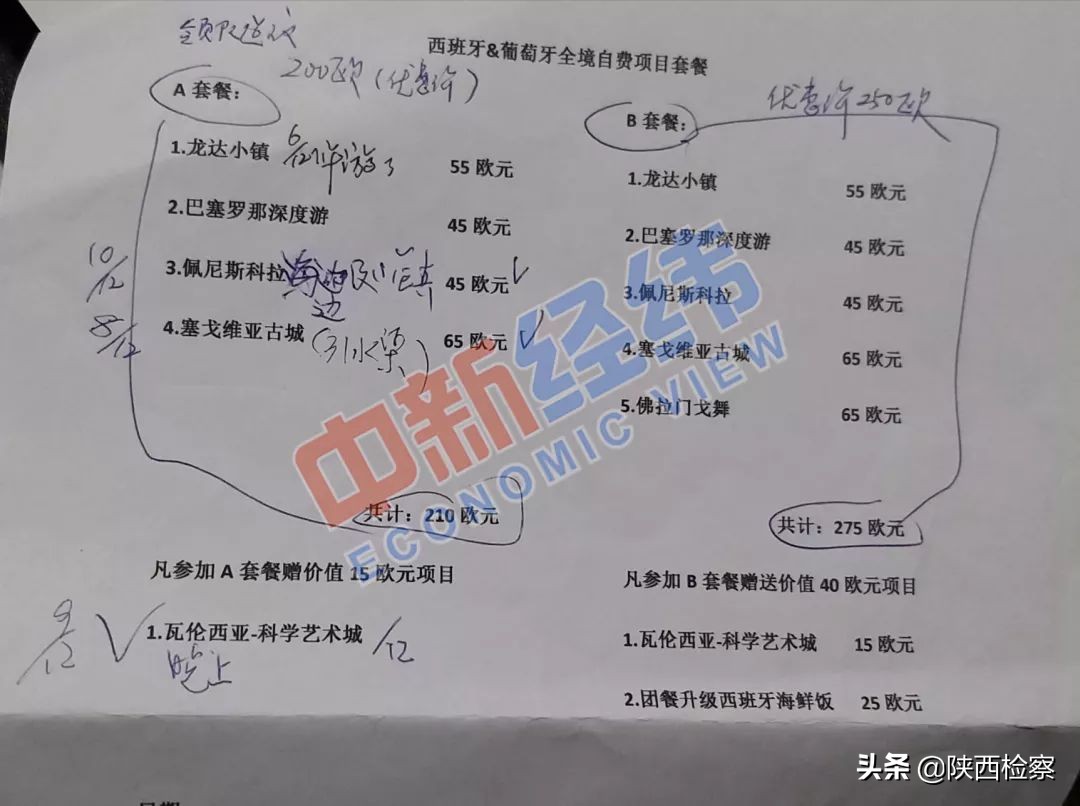 领队送议
西班牙&葡萄牙全境自费项目套餐
200欧(优惠价)
A 套餐:
优惠价250欧
B 套餐:
1.龙达小镇 6/12 游了 55 欧元
2.巴塞罗那深度游 45 欧元
10/12 3.佩尼斯科拉 海边 小镇 45 欧元 √
8/12 4.塞戈维亚古城 (引水渠) 65 欧元 √
共计：210 欧元
1.龙达小镇 55 欧元
2.巴塞罗那深度游 45 欧元
3.佩尼斯科拉 45 欧元
4.塞戈维亚古城 65 欧元
5.佛拉门戈舞 65 欧元
共计：275 欧元
凡参加 A 套餐赠价值 15 欧元项目
9/12 √ 1.瓦伦西亚-科学艺术城 /12
晚上
凡参加 B 套餐赠送价值 40 欧元项目
1.瓦伦西亚-科学艺术城 15 欧元
2.团餐升级西班牙海鲜饭 25 欧元
中新经纬
ECONOMIC VIEW
头条 @陕西检察